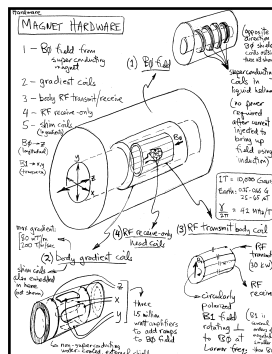 Hardware
MAGNET HARDWARE
1 – Bφ field from
superconducting
magnet
2 – gradient coils
3 – body RF transmit/receive
4 – RF receive-only
5 – shim coils
(in gradients)
Bφ → z
(longitudinal)
B1 → x,y
(transverse)
(1) Bφ field
(opposite
direction
Bφ shield
coils
superconducting
coils in
liquid helium
(no power
required
after current
injected to
bring up
field using
induction)
y
z
x
Bφ
1T = 10,000 Gauss
Earth: 0.25-0.65 G
25-65 μT
γ/2π = 42 MHz/T
max gradient:
80 mT/m
200 T/m/s
(4) RF receive-only
head coils
(3) RF transmit body coil
(2) body gradient coils
shim coils
also embedded
in here
(not shown)
x
y
z
three
1.5 million
watt amplifiers
to add ramps
to Bφ field
RF
transmit
RF
receive
circularly
polarized
B1 field
rotating ⊥
to Bφ at
Larmor freq.
B1 is
several